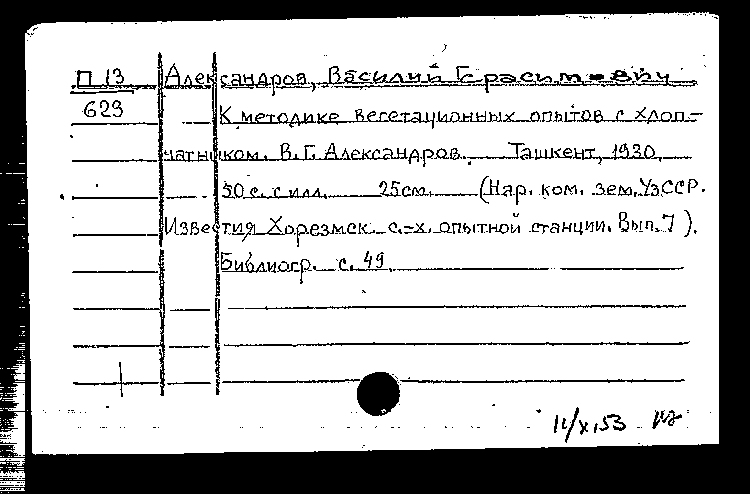 П 13 Александров, Василий Герасимович
629 К методике вегетационных опытов с хлоп-
чатником. В.Г. Александров. Ташкент, 1930,
50 с. с илл. 25см. (Нар. ком. зем. УзССР.
Известия Хорезмск. с.-х. опытной станции. Вып. 7).
Библиогр. с. 49.
11/X.53